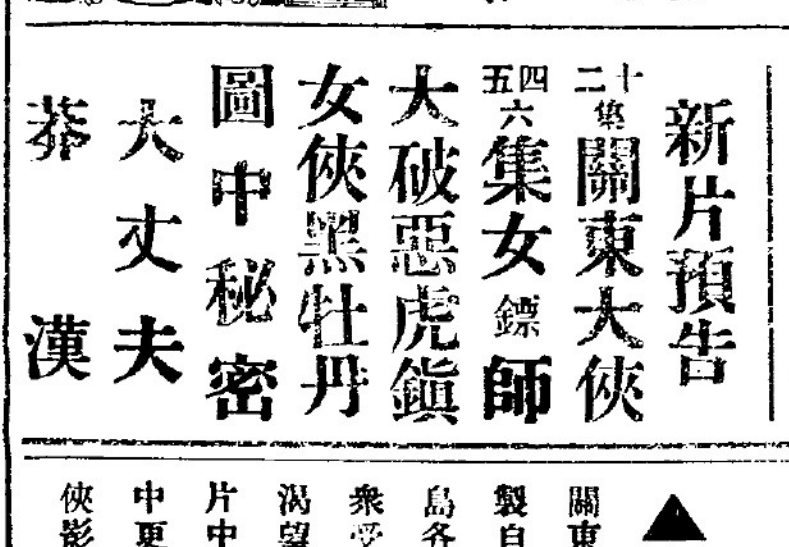 新片預告
十二集關東大俠
四五六集女鏢師
大破惡虎鎭
女俠黑牡丹
圖中秘密
大丈夫
莽漢
▲
關東
製自
島各
衆受
渴望
片中
中更
俠影